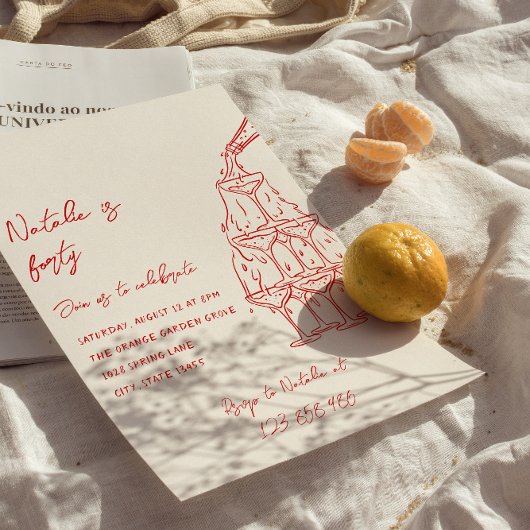 CARTA DO CEO
-vindo ao nos
UNIVER
Natalie is
forty
Join us to celebrate
SATURDAY, AUGUST 12 AT 8PM
THE ORANGE GARDEN GROVE
1028 SPRING LANE
CITY, STATE 13455
Rsvp to Natalie at
123 858 486